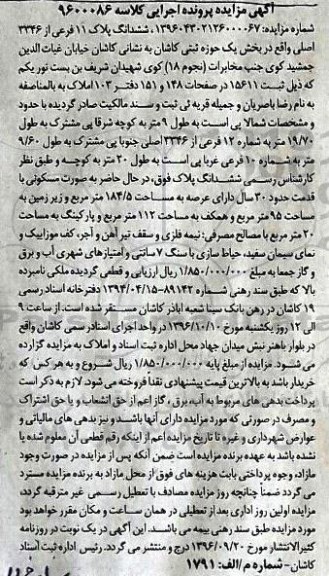 آگهی مزایده پرونده اجرایی کلاسه ۹۶۰۰۰۸۶
شماره مزایده: ۱۳۹۶۰۴۳۰۲۱۳۶۰۰۰۰۶۷، ششدانگ پلاک ۱۱ فرعی از ۳۳۴۶
اصلی واقع در بخش یک حوزه ثبتی کاشان به نشانی کاشان خیابان غیاث الدین
جمشید کوی جنب مخابرات (نجوم ۱۸) کوی شهیدان شریف بن بست نور یکم
که ذیل ثبت ۱۵۶۱۱ در صفحات ۱۴۸ و ۱۵۱ دفتر ۱۰۳ املاک به بالمناصفه
به نام رضا باصریان و جمیله قریه ئی ثبت و سند مالکیت صادر گردیده با حدود
و مشخصات شمالا پی است به طول ۹ متر به کوچه شرقا پی مشترک به طول
۱۹/۷۰ متر به شماره ۱۲ فرعی از ۳۳۴۶ اصلی جنوبا پی مشترک به طول ۹/۶۰
متر به شماره ۱۰ فرعی غربا پی است به طول ۲۰ متر به کوچه و طبق نظر
کارشناس رسمی ششدانگ پلاک فوق، در حال حاضر به صورت مسکونی با
قدمت حدود ۳۰ سال دارای عرصه به مساحت ۱۸۴/۵ متر مربع و زیر زمین به
مساحت ۹۵ متر مربع و همکف به مساحت ۱۱۲ متر مربع و پارکینگ به مساحت
۲۰ متر مربع با مصالح مصرفی: نیمه فلزی و سقف تیر آهن و آجر، کف موزاییک و
نمای سیمان سفید، حیاط سازی با سنگ ۷ سانتی و امتیازهای شهری آب و برق
و گاز جمعا به مبلغ ۱/۸۵۰/۰۰۰/۰۰۰ ریال ارزیابی و قطعی گردیده ملکی نامبرده
بالا که طبق سند رهنی شماره ۸۹۱۴۲-۱۳۹۴/۰۴/۱۵ دفترخانه اسناد رسمی
۱۹ کاشان در رهن بانک سپا شعبه اباذر کاشان مستقر شده است. از ساعت ۹
الی ۱۲ روز یکشنبه مورخ ۱۳۹۶/۱۰/۱۰ در واحد اجرای اسناد رسمی کاشان واقع
در بلوار باهنر نبش میدان جهاد محل اداره ثبت اسناد و املاک به مزایده گزارده
می شود. مزایده از مبلغ پایه ۱/۸۵۰/۰۰۰/۰۰۰ ریال شروع و به هر کس که
خریدار باشد به بالاترین قیمت پیشنهادی نقدا فروخته می شود. لازم به ذکر است
پرداخت بدهی های مربوط به آب، برق، گاز اعم از حق انشعاب و یا حق اشتراک
و مصرف در صورتی که مورد مزایده دارای آنها باشد و نیز بدهی های مالیاتی و
عوارض شهرداری و غیره تا تاریخ مزایده اعم از اینکه رقم قطعی آن معلوم شده یا
نشده باشد به عهده برنده مزایده است ضمن آنکه پس از مزایده در صورت وجود
مازاد، وجوه پرداختی بابت هزینه های فوق از محل مازاد به برنده مزایده مسترد
می گردد ضمناً چنانچه روز مزایده مصادف با تعطیل رسمی غیر مترقبه گردد،
مزایده اولین روز اداری بعد از تعطیلی در همان ساعت و مکان مقرر خواهد بود
مورد مزایده طبق سند رهنی بیمه می باشند. این آگهی در یک نوبت در روزنامه
کثیرالانتشار مورخ ۱۳۹۶/۰۹/۲۰ درج و منتشر می گردد. رئیس اداره ثبت اسناد
کاشان- شماره م/الف: ۱۷۹۱